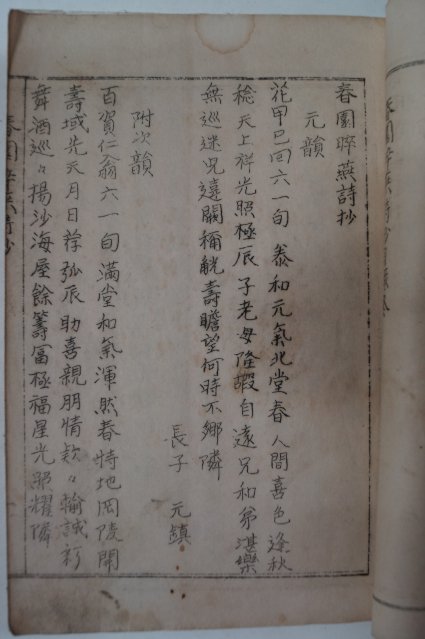 春園晬燕詩抄
元韻
花甲已回六一旬 泰和元氣北堂春 人間喜色逢秋
稔 天上祥光照極辰 子老母隆嘏自遠 兄和弟湛樂
無巡 迷兄遠關稱觥壽 瞻望何時不鄉隣
長子 元鎭
附次韻
百賀仁翁六一旬 滿堂和氣渾然春 特地岡陵開
壽域 先天月日荐弧辰 助喜親朋情欵々 輸誠彩
舞酒巡々 揚沙海屋餘籌富 極福星光照耀隣